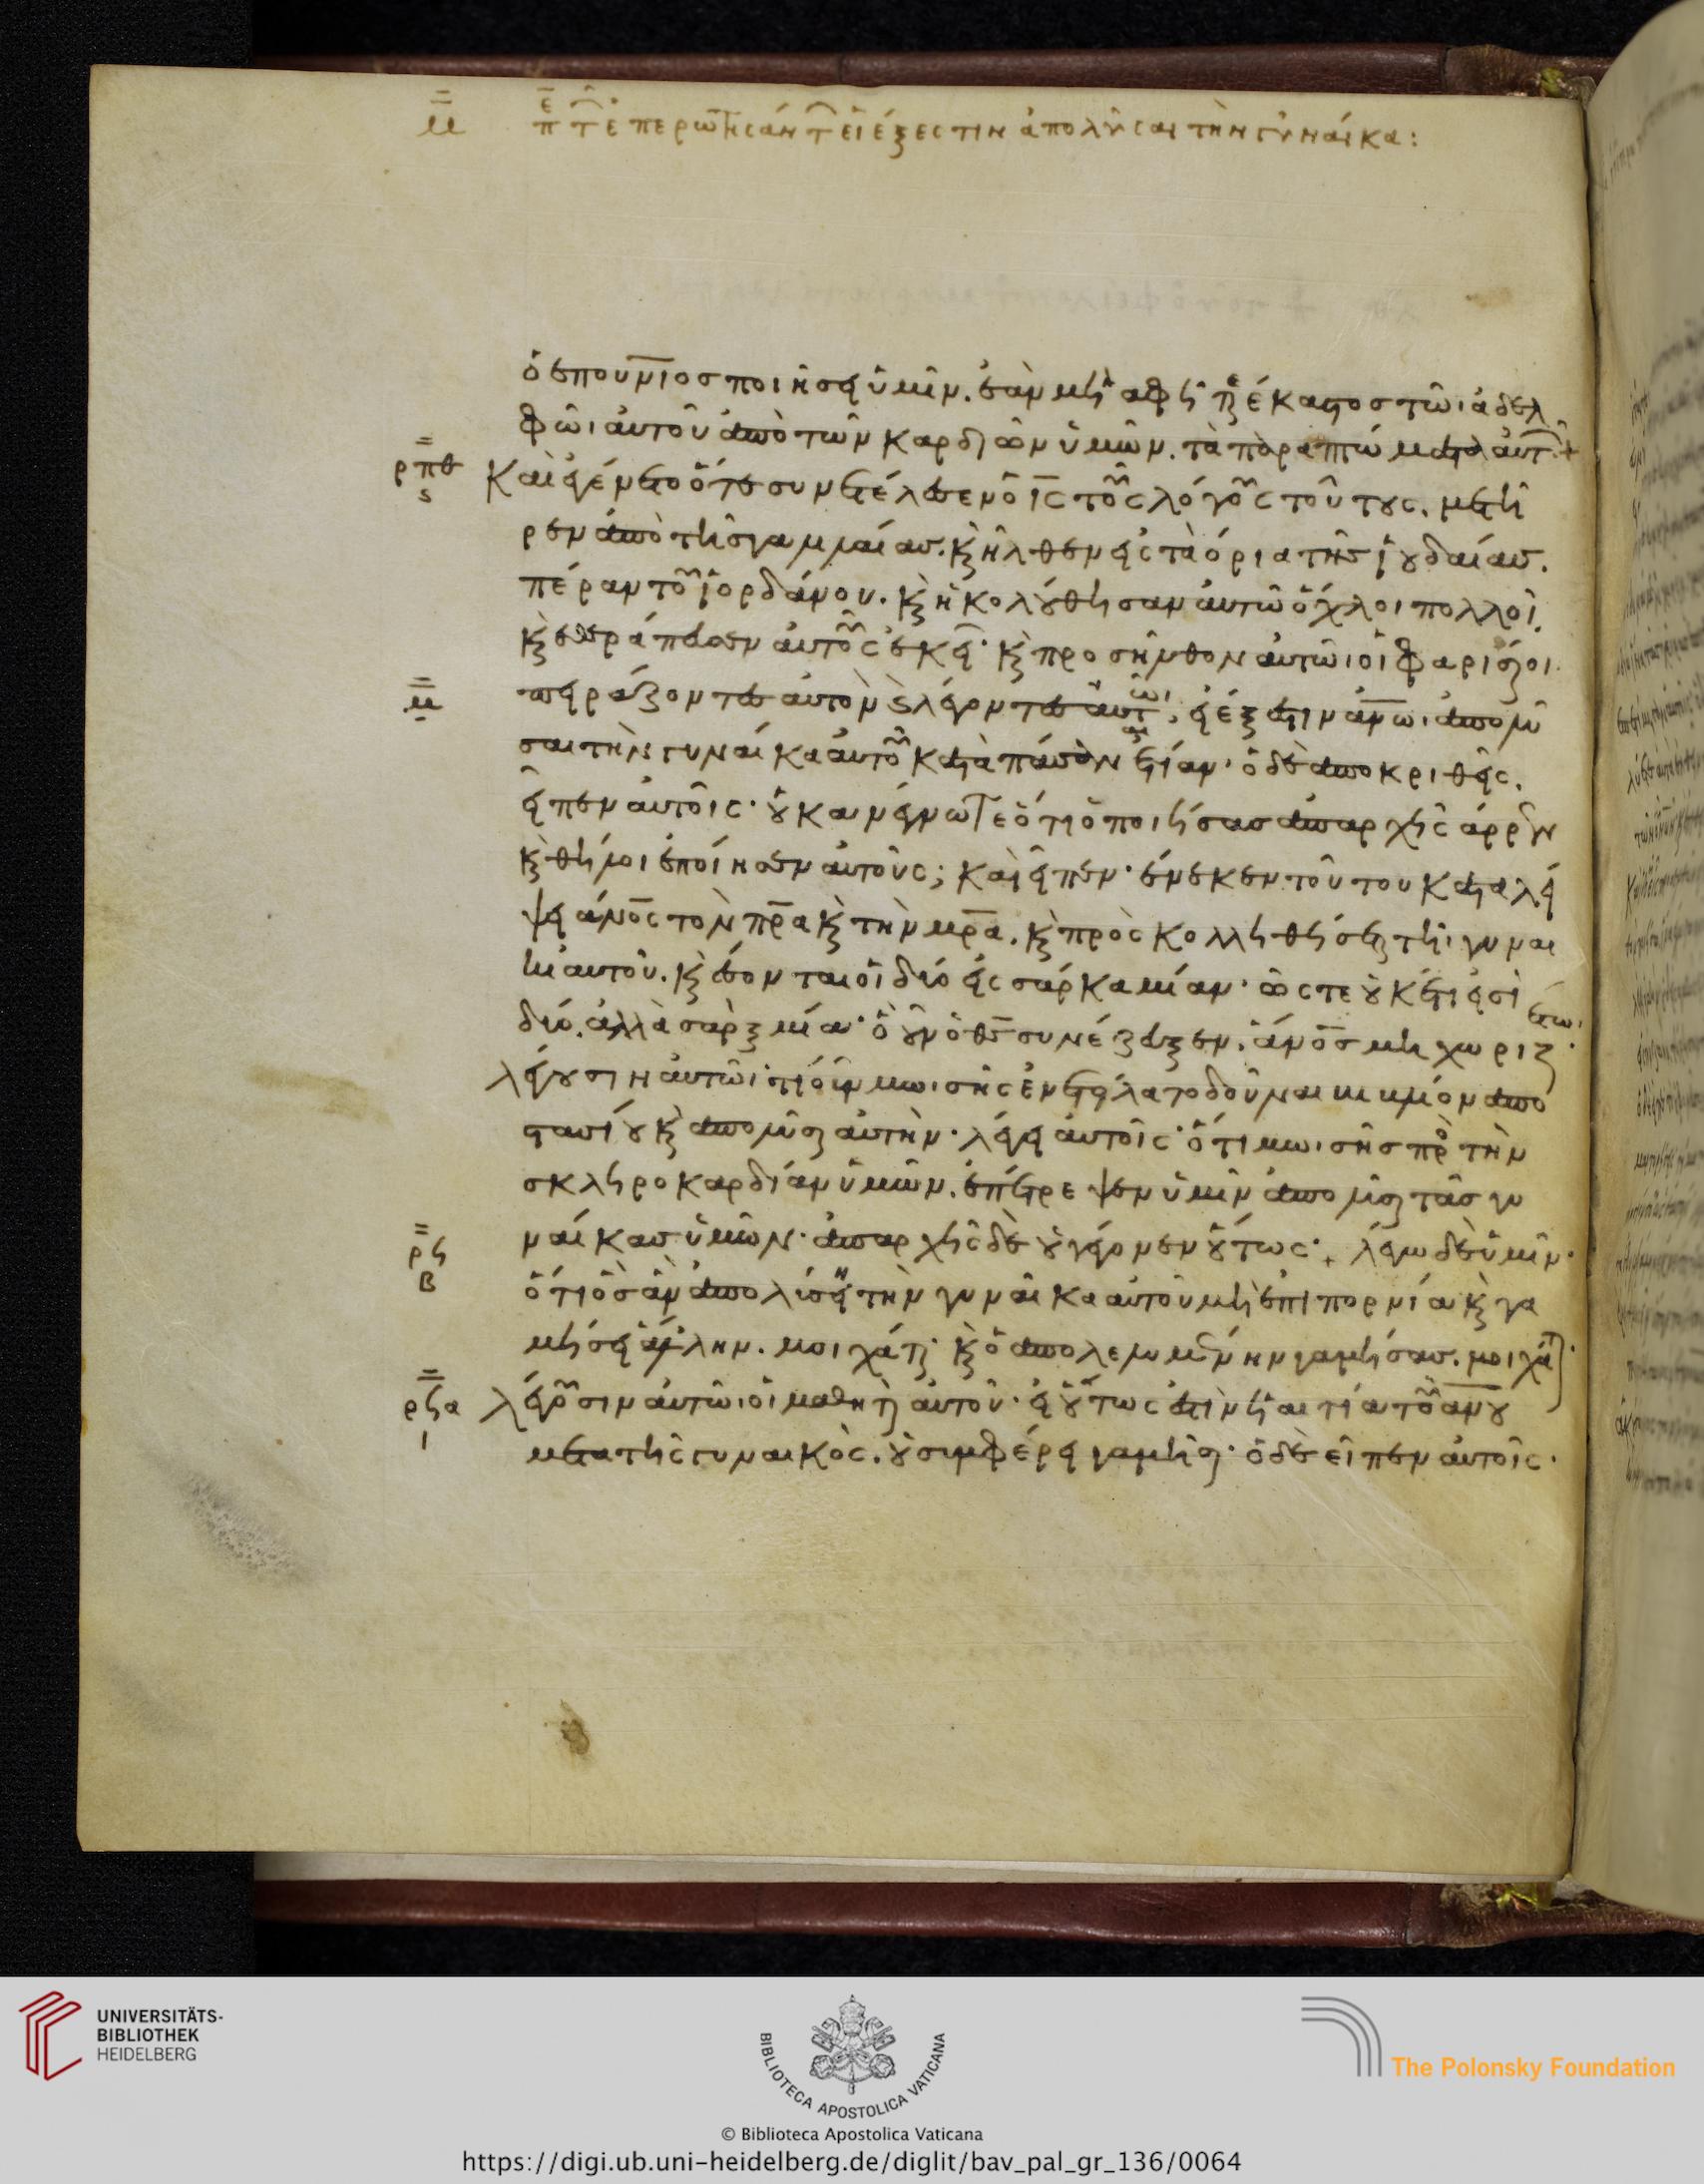 μ̅ πε τ ἐπερωτησάντ εἰ ἔξεστιν ἀπολῦσαι τὴν γυναῖκα:
ὁ επουνιος ποιήσει ὑμῖν. ἐὰν μὴ ἀφῆτε ἕκαστος τῶι ἀδελ
φῶι αὐτοῦ ἀπὸ τῶν καρδιῶν ὑμῶν. τὰ παραπτώματα αὐτ +
ρπθ ς Καὶ ἐγένετο ὅτε συνετέλεσεν ὁ ι̅ς̅ τοὺς λόγους τούτους. μετῆ
ρεν ἀπὸ τῆς γαλιλαίας. κ ἦλθεν εἰς τὰ ὅρια τῆς ἰουδαίας.
πέραν τοῦ ἰορδάνου. κ ἠκολούθησαν αὐτῶ ὄχλοι πολλοί.
κ ἐθεράπευσεν αὐτοὺς ἐκεῖ· κ προσῆλθον αὐτῶι οἱ φαρισαῖοι
μ̅ πειράζοντες αὐτὸν κ λέγοντες αὐτῶι, εἰ ἔξεστιν ἀν̅ω̅ι ἀπολῦ
σαι τὴν γυναῖκα αὐτοῦ κατὰ πᾶσαν αἰτίαν· ὁ δὲ ἀποκριθεὶς.
εἶπεν αὐτοῖς· οὐκ ἀνέγνωτε ὅτι ὁ ποιήσας ἀπαρχῆς ἄρρεν
κ θῆλυ ἐποίησεν αὐτούς; καὶ εἶπεν· ἕνεκεν τούτου καταλεί
ψει ἄν̅ο̅ς τὸν π̅ρ̅α κ τὴν μ̅ρ̅α. κ προσκολληθήσεται τῆι γυναι
κὶ αὐτοῦ. κ ἔσονται οἱ δύο εἰς σάρκα μίαν· ὥστε οὐκέτι εἰσὶ
δύο. ἀλλὰ σὰρξ μία· ὃ οὖν ὁ θ̅ς̅ συνέζευξεν. ἄν̅ο̅ς μὴ χωριζέτω·
λέγουσιν αὐτῶι· τί οὖν μωισῆς ἐνετείλατο δοῦναι βιβλίον ἀπο
στασίου κ ἀπολῦσαι αὐτήν· λέγει αὐτοῖς· ὅτι μωισῆς πρὸ τὴν
σκληροκαρδίαν ὑμῶν. ἐπέτρεψεν ὑμῖν ἀπολῦσαι τὰς γυ
ναῖκας ὑμῶν· ἀπαρχῆς δὲ οὐ γέγονεν οὕτως·+ λέγω δὲ ὑμῖν·
ρϟ β ὅτι ὃς ἂν ἀπολύση τὴν γυναῖκα αὐτοῦ μὴ ἐπι πορνία κ γα
μήσει ἄλλην. μοιχάται· κ ὁ ἀπολελυμένην γαμήσας. μοιχάται·
ρϟα ι λέγουσιν αὐτῶι οἱ μαθηταὶ αὐτοῦ· εἰ οὕτως ἐστὶν ἡ αἰτία τοῦ ἀν̅ο̅υ
μετὰ τῆς γυναικός. οὐ συμφέρει γαμῆσαι· ὁ δὲ εἶπεν αὐτοῖς·
UNIVERSITÄTS-
BIBLIOTHEK
HEIDELBERG
BIBLIOTECA APOSTOLICA VATICANA
The Polonsky Foundation
© Biblioteca Apostolica Vaticana
https://digi.ub.uni-heidelberg.de/diglit/bav_pal_gr_136/0064